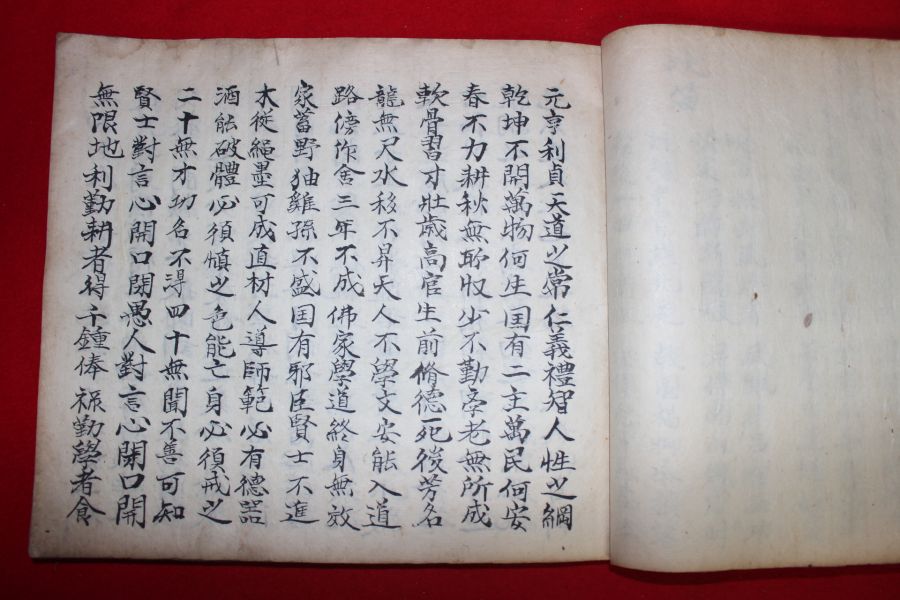 元亨利貞天道之常仁義禮智人性之綱
乾坤不開萬物何生囯有二主萬民何安
春不力耕秋無所収少不勤斈老無所成
軟骨習寸壯歲高官生前脩德死後芳名
龍無尺水移不昇天人不學文安能入道
路傍作舍三年不成佛家學道終身無效
家蓄野猫雞孫不盛囯有邪臣賢士不進
木從繩墨可成直材人導師範必有德器
酒能破體必須慎之色能亡身必須戒之
二十無才功名不淂四十無聞不善可知
賢士對言心開口閉愚人對言心閉口開
無限地利勤耕者得千鍾俸祿勤學者食